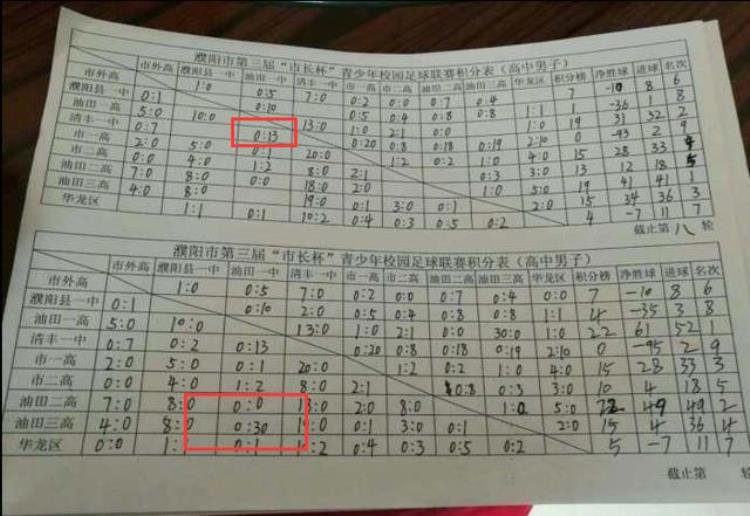 濮阳市第三届“市长杯”青少年校园足球联赛积分表（高中男子）
市外高 濮阳县一中 油田一中 清丰一中 市一高 市二高 油田二高 油田三高 华龙区 积分榜 净胜球 进球 名次
市外高 1:0 0:5 7:0 0:2 0:0 0:7 0:4 7 -10 8 6
濮阳县一中 0:1 0:10 0:5 0:4 0:8 0:8 1:1 1 -36 1 8
油田一高 5:0 10:0 13:0 1:0 2:1 0:0 1:0 19 31 32 2
清丰一中 0:7 0:13 0:20 0:8 0:18 0:19 2:10 0 -93 2 9
市一高 2:0 5:0 0:1 20:0 1:2 0:2 1:0 4:0 15 28 33 4
市二高 0:0 4:0 1:2 8:0 2:1 0:3 3:0 13 12 18 5
油田二高 7:0 8:0 0:0 18:0 2:0 1:0 5:0 19 41 41 1
油田三高 4:0 8:0 19:0 0:1 3:0 0:1 2:0 15 34 36 3
华龙区 1:1 0:1 10:2 0:4 0:3 0:5 0:2 4 -7 11 7
截止第 八 轮
濮阳市第三届“市长杯”青少年校园足球联赛积分表（高中男子）
市外高 濮阳县一中 油田一中 清丰一中 市一高 市二高 油田二高 油田三高 华龙区 积分榜 净胜球 进球 名次
市外高 1:0 0:5 7:0 0:2 0:0 0:7 0:4 0:0 7 -10 8 6
濮阳县一中 0:1 0:10 2:0 0:5 0:4 0:8 0:8 1:1 4 -35 3 8
油田一高 5:0 10:0 13:0 1:0 2:1 0:0 30:0 1:0 22 61 52 1
清丰一中 0:7 0:2 0:13 0:20 0:8 0:18 0:19 2:10 0 -95 2 9
市一高 2:0 5:0 0:1 20:0 1:2 0:2 1:0 4:0 15 28 33 3
市二高 0:0 4:0 1:2 8:0 2:1 0:8 0:3 3:0 10 4 18 5
油田二高 7:0 8:0 0:0 18:0 2:0 8:0 1:0 5:0 22 49 49 2
油田三高 4:0 8:0 0:30 19:0 0:1 3:0 0:1 2:0 15 4 36 4
华龙区 0:0 1: 0:1 :2 0:4 0:3 0:5 0:2 5 -7 11 7
截止第 轮